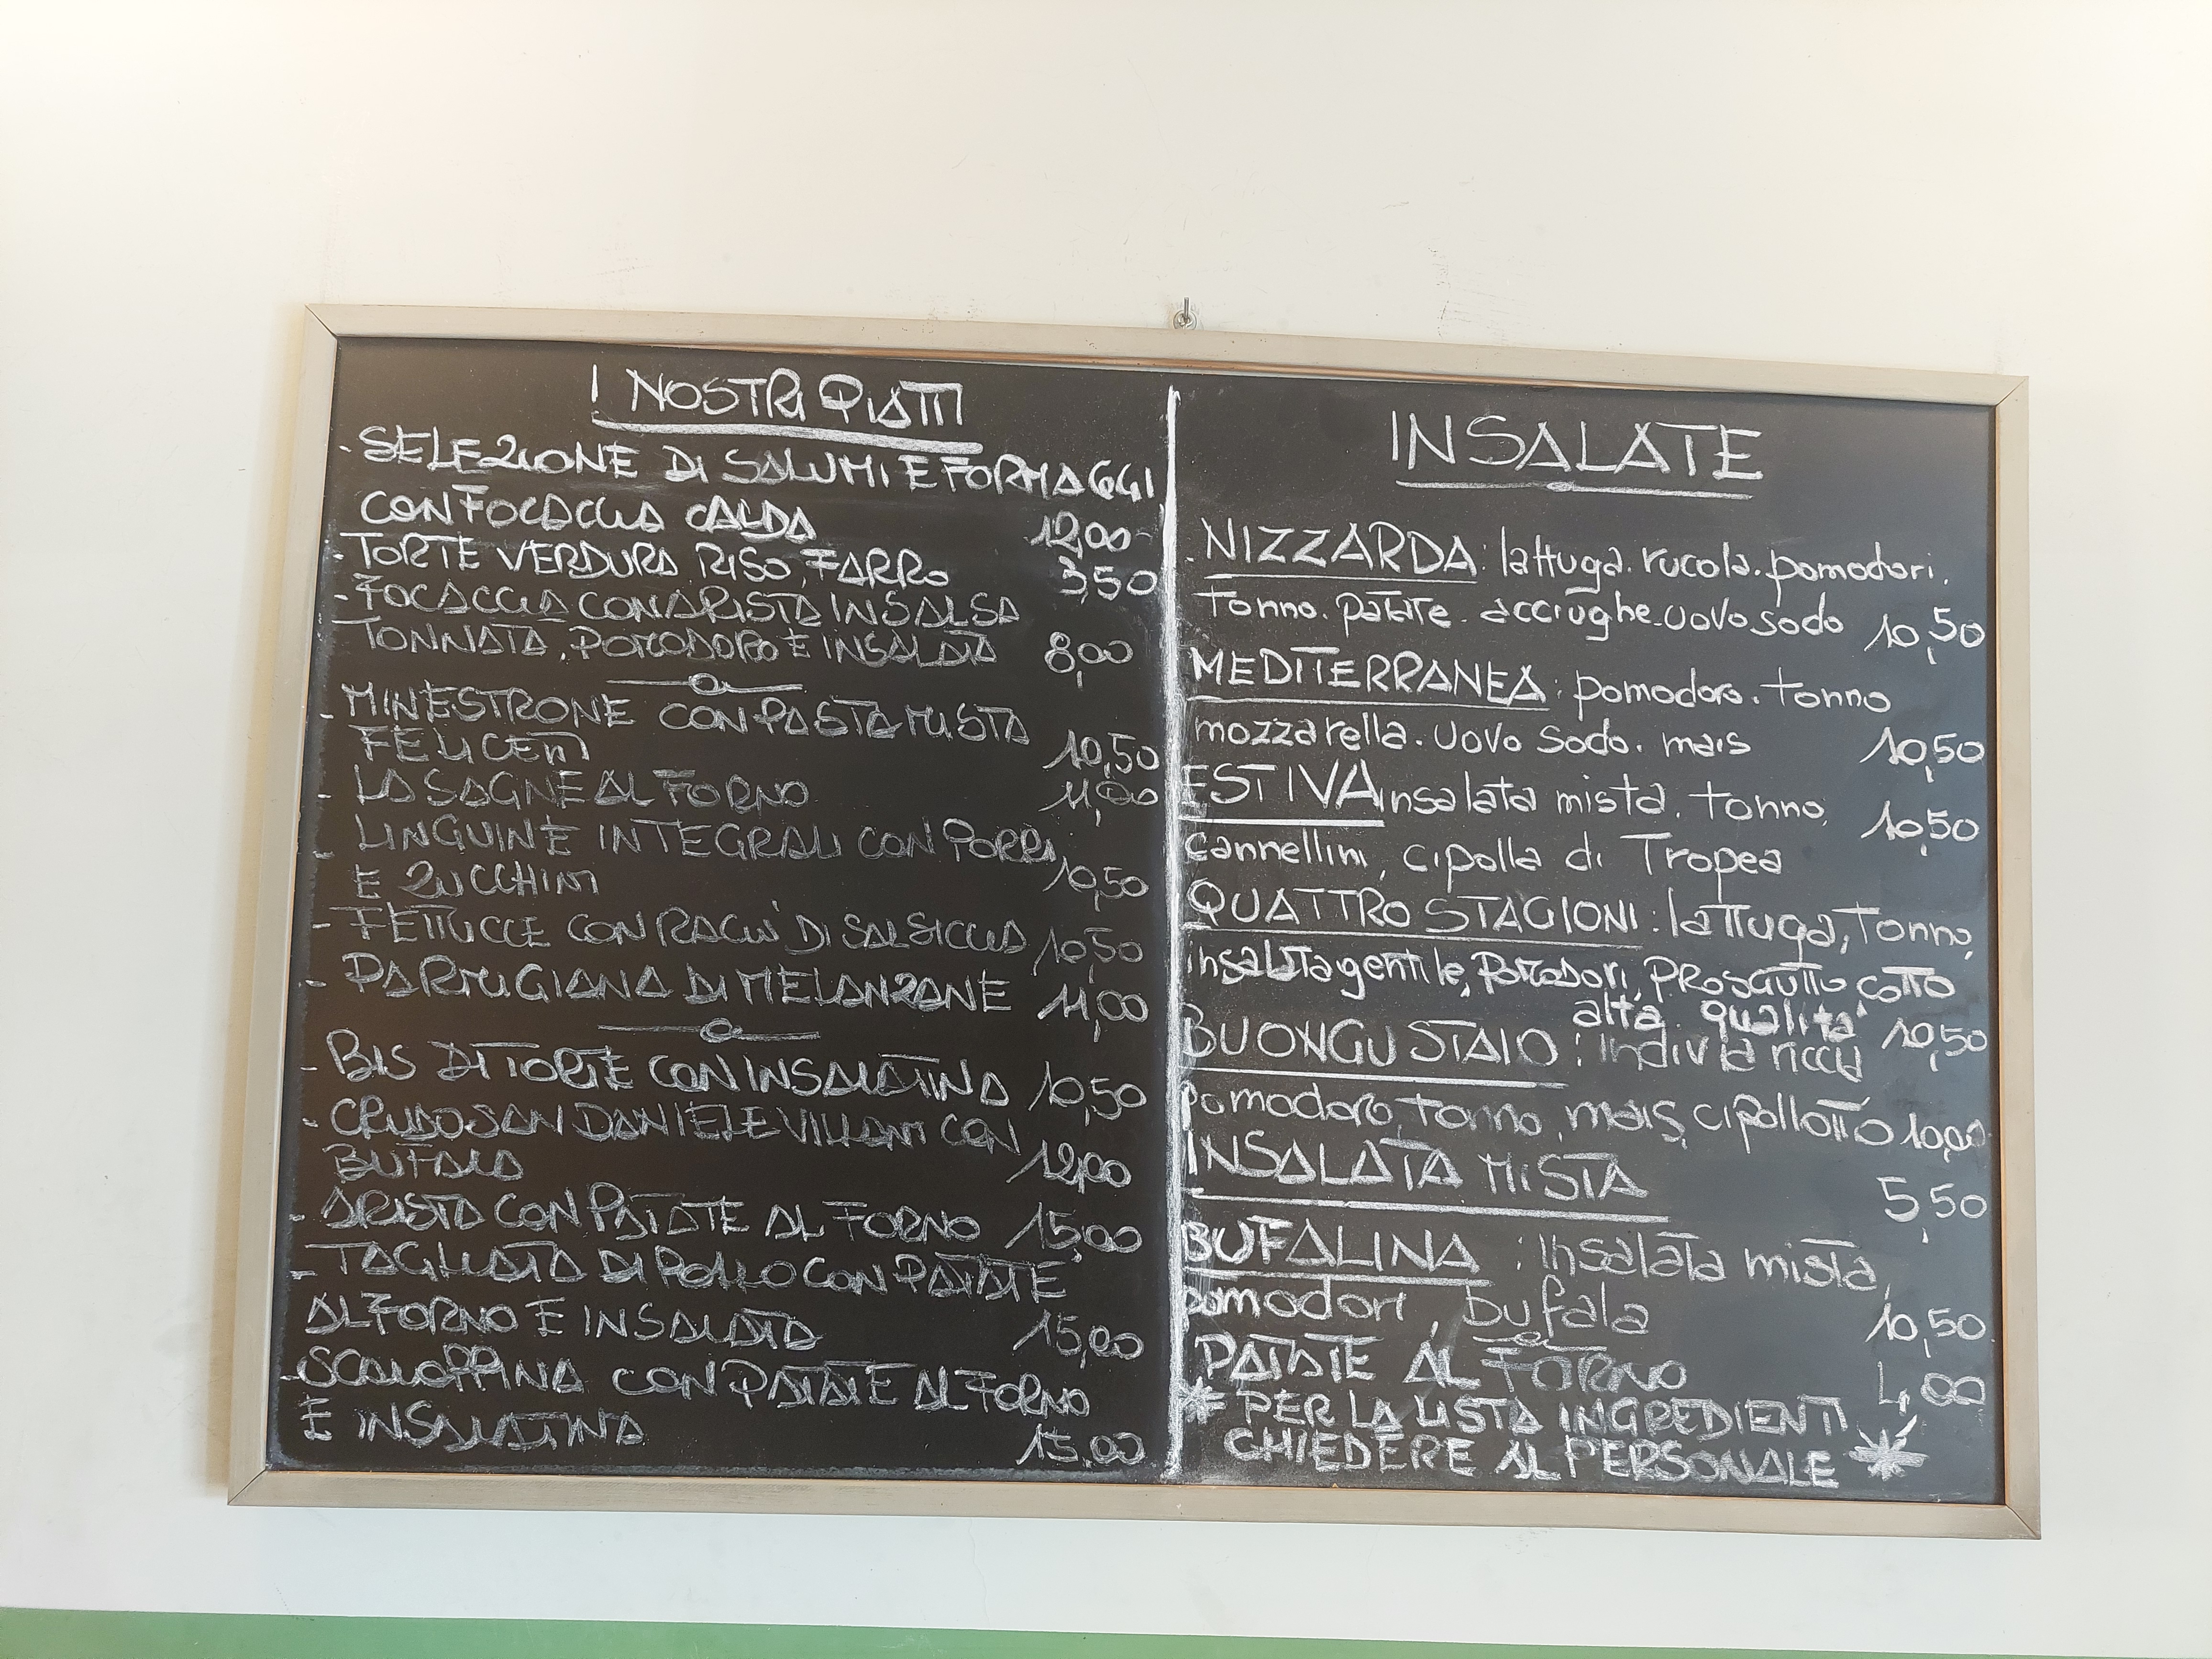 I NOSTRI PIATTI
- SELEZIONE DI SALUMI E FORMAGGI
CON FOCACCIA CALDA 12,00
- TORTE VERDURA RISO, FARRO 3,50
- FOCACCIA CON ARISTA IN SALSA
TONNATA, POMODORO E INSALATA 8,00
- MINESTRONE CON PASTA MISTA
FELICETTI 10,50
- LASAGNE AL FORNO 11,00
- LINGUINE INTEGRALI CON PORRI
E ZUCCHINI 10,50
- FETTUCCE CON RAGU' DI SALSICCIA 10,50
- PARMIGIANA DI MELANZANE 11,00
- BIS DI TORTE CON INSALATINA 10,50
- CRUDO SAN DANIELE VILLANI CON
BUFALA 12,00
- ARISTA CON PATATE AL FORNO 15,00
- TAGLIATA DI POLLO CON PATATE
AL FORNO E INSALATA 15,00
- SCALOPPINA CON PATATE AL FORNO
E INSALATINA 15,00
INSALATE
. NIZZARDA: lattuga. rucola. pomodori.
tonno. patate. acciughe. uovo sodo 10,50
MEDITERRANEA: pomodoro. tonno
mozzarella. uovo sodo. mais 10,50
ESTIVA insalata mista. tonno, 10,50
cannellini, cipolla di Tropea
QUATTRO STAGIONI: lattuga, tonno,
insalata gentile, pomodori, PROSCIUTTO COTTO
alta qualita' 10,50
BUONGUSTAIO: indivia riccia
pomodoro, tonno, mais, cipollotto 10,00
INSALATA MISTA 5,50
BUFALINA: insalata mista,
pomodori, bufala 10,50
PATATE AL FORNO 4,00
* PER LA LISTA INGREDIENTI
CHIEDERE AL PERSONALE *